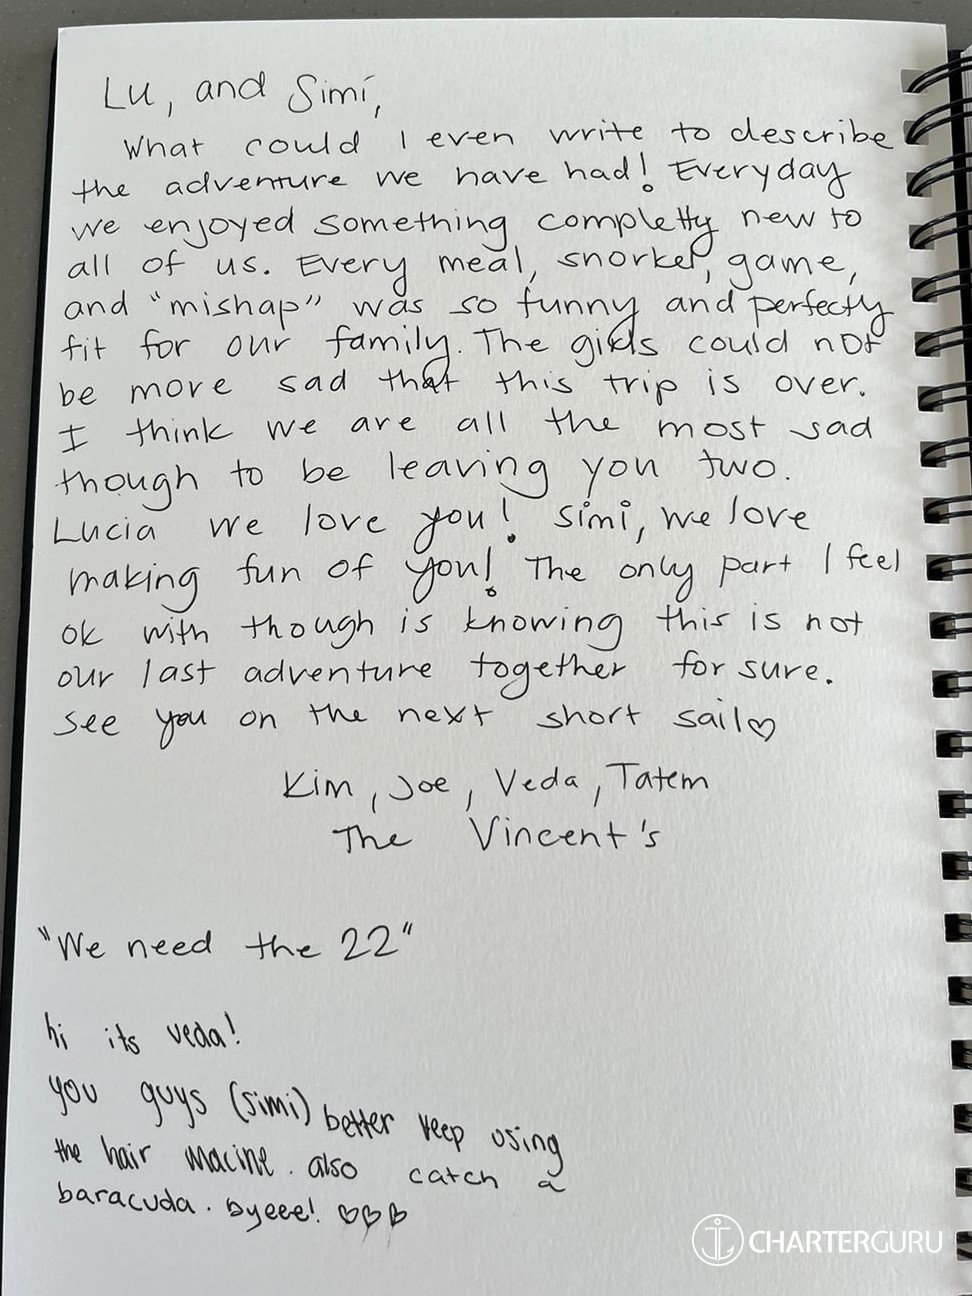 Lu, and Simi,
What could I even write to describe
the adventure we have had! Everyday
we enjoyed something completly new to
all of us. Every meal, snorkel, game,
and "mishap" was so funny and perfectly
fit for our family. The girls could not
be more sad that this trip is over.
I think we are all the most sad
though to be leaving you two.
Lucia we love you! Simi, we love
making fun of you! The only part I feel
ok with though is knowing this is not
our last adventure together for sure.
See you on the next short sail♡
Kim, Joe, Veda, Tatem
The Vincent's
"We need the 22"
hi its veda!
you guys (simi) better keep using
the hair macine. also catch a
baracuda. byeee! ♡♡♡
CHARTERGURU